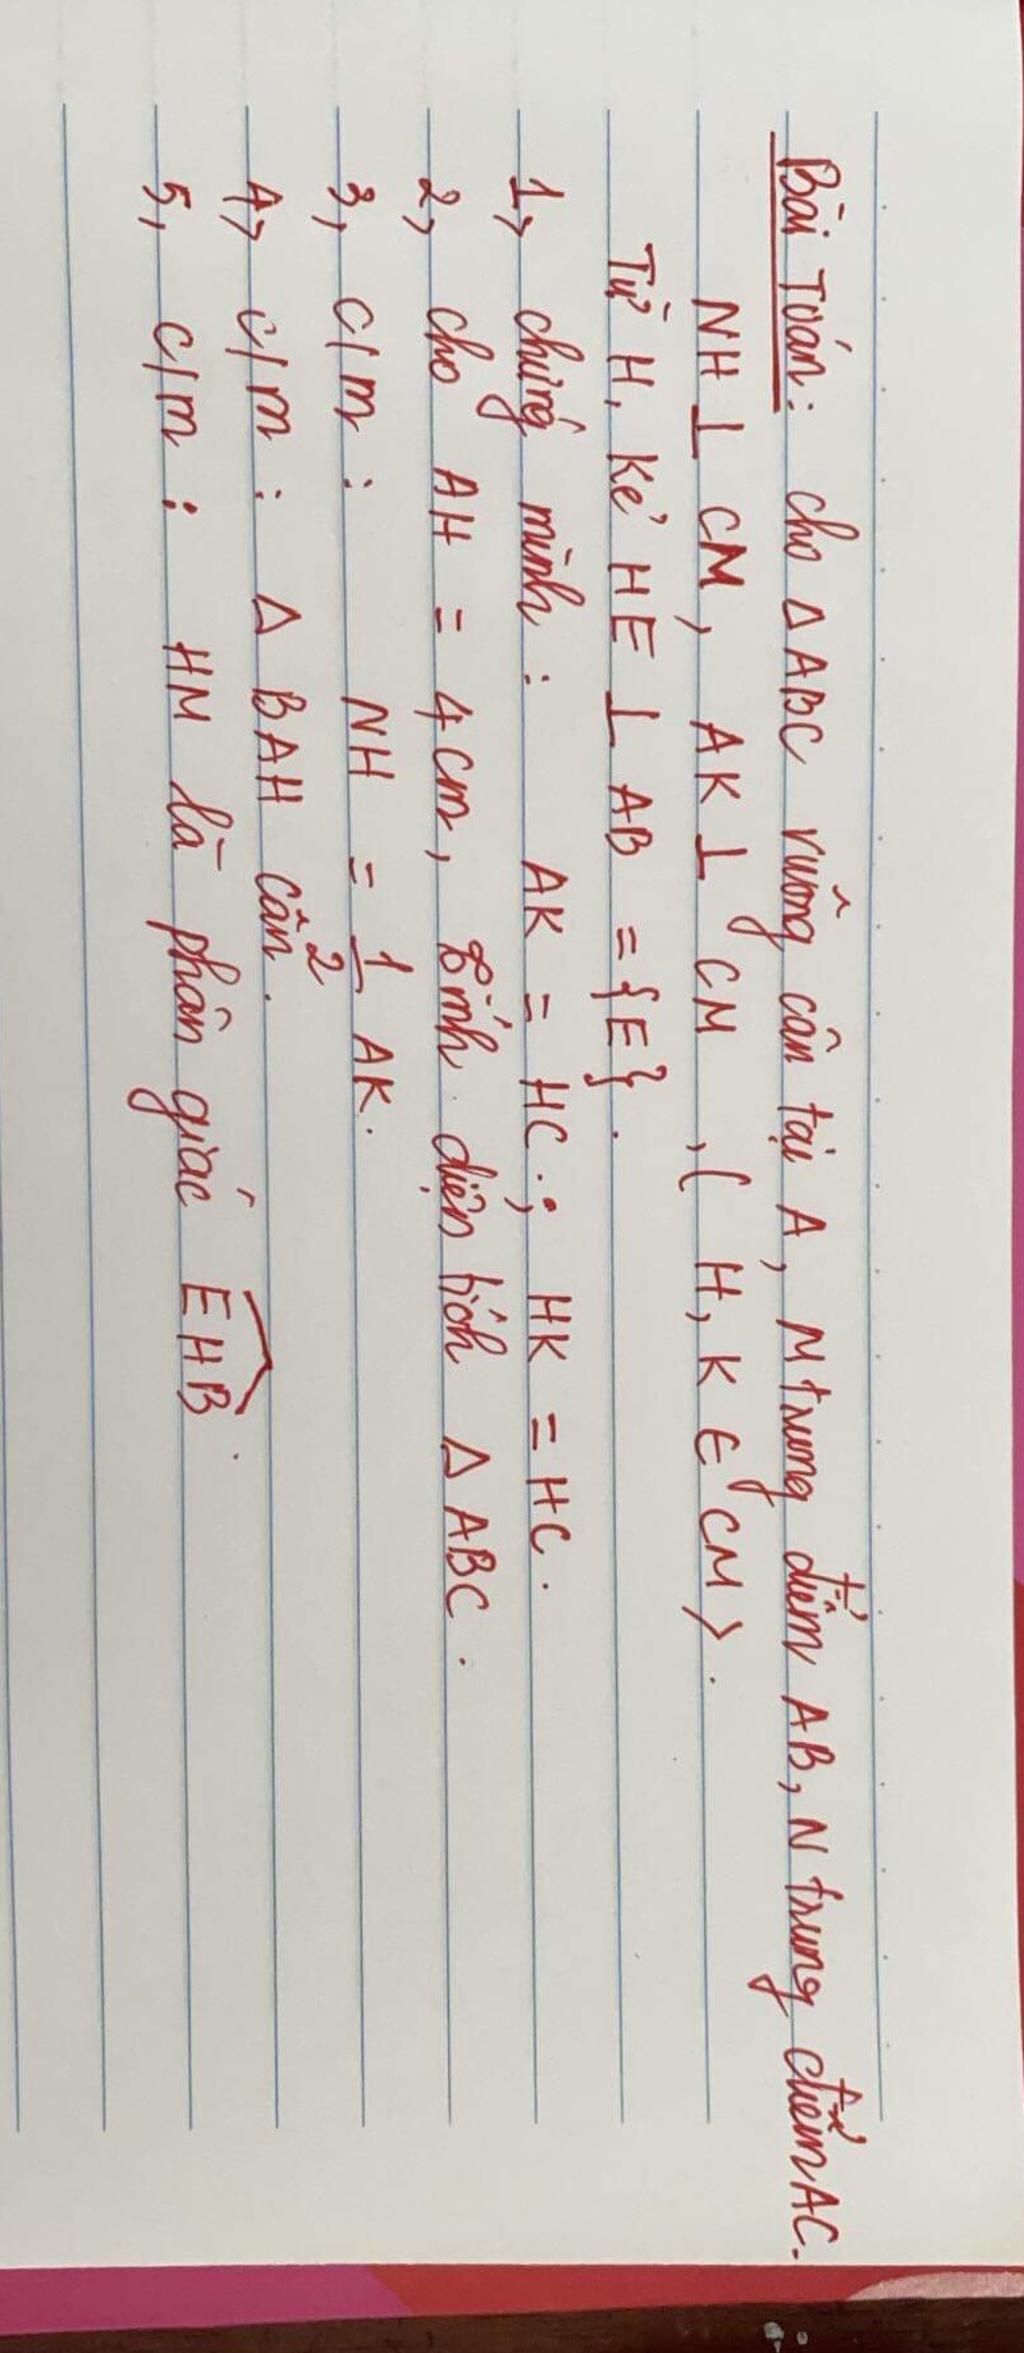 Bài Toán: cho Δ ABC vuông cân tại A, M trung điểm AB, N trung điểm AC.
NH ⊥ CM, AK ⊥ CM, ( H, K ∈ CM ).
Từ H, kẻ HE ⊥ AB = {E}.
1, chứng minh : AK = HC ; HK = HC.
2, cho AH = 4cm, tính diện tích Δ ABC.
3, c/m : NH = 1/2 AK.
4, c/m : Δ BAH cân.
5, c/m : HM là phân giác EHB.